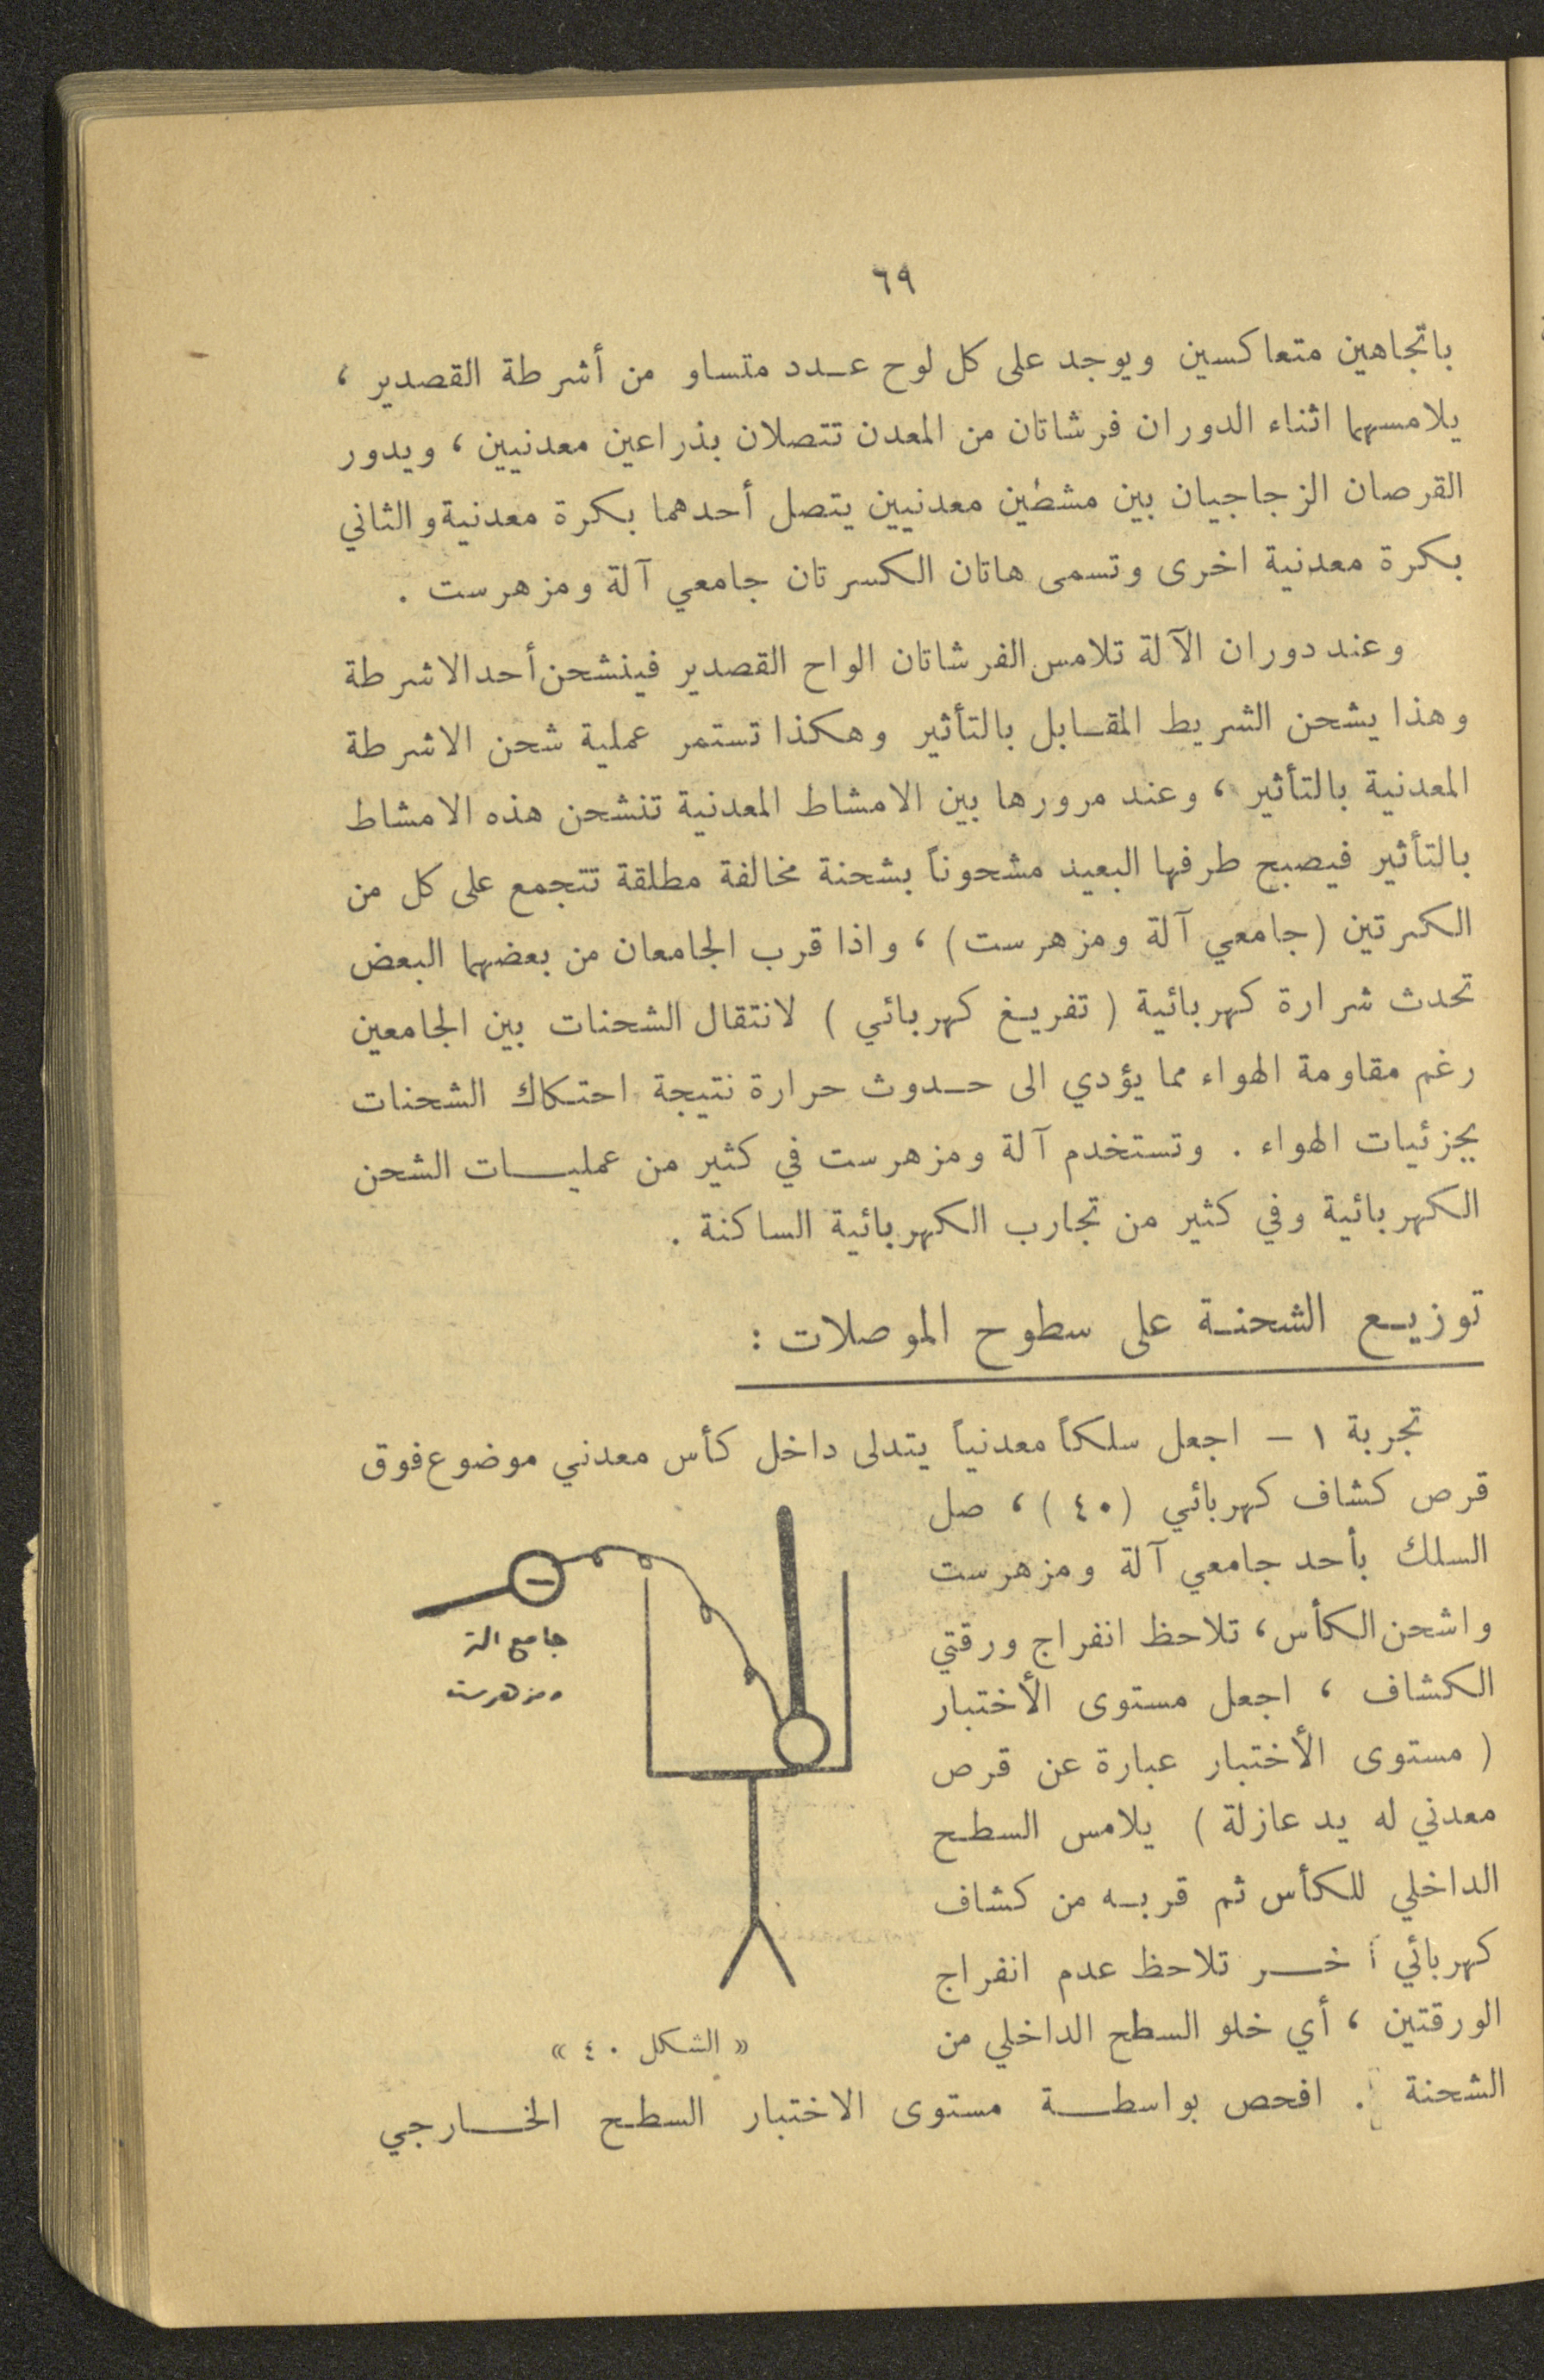 ٦٩
باتجاهين متعاكسين ويوجد على كل لوح عـدد متساو من أشرطة القصدير ،
يلامسهما اثناء الدوران فرشاتان من المعدن تتصلان بذراعين معدنيين ، ويدور
القرصان الزجاجيان بين مشطين معدنيين يتصل أحدهما بكرة معدنية والثاني
بكرة معدنية اخرى وتسمى هاتان الكسرتان جامعي آلة ومزهرست .
وعند دوران الآلة تلامس الفرشاتان الواح القصدير فينشحن أحد الاشرطة
وهذا يشحن الشريط المقـابل بالتأثير وهكذا تستمر عملية شحن الاشرطة
المعدنية بالتأثير ، وعند مرورها بين الامشاط المعدنية تنشحن هذه الامشاط
بالتأثير فيصبح طرفها البعيد مشحوناً بشحنة مخالفة مطلقة تتجمع على كل من
الكرتين (جامعي آلة ومزهرست) ، واذا قرب الجامعان من بعضهما البعض
تحدث شرارة كهربائية ( تفريـغ كهربائي ) لانتقال الشحنات بين الجامعين
رغم مقاومة الهواء مما يؤدي الى حـدوث حرارة نتيجة احتكاك الشحنات
بجزئيات الهواء . وتستخدم آلة ومزهرست في كثير من عمليـات الشحن
الكهربائية وفي كثير من تجارب الكهربائية الساكنة .
توزيـع الشحنـة على سطوح الموصلات :
تجربة ١ - اجعل سلكاً معدنياً يتدلى داخل كأس معدني موضوع فوق
قرص كشاف كهربائي (٤٠) ، صل
السلك بأحد جامعي آلة ومزهرست
واشحن الكأس ، تلاحظ انفراج ورقتي
الكشاف ، اجعل مستوى الأختبار
( مستوى الأختبار عبارة عن قرص
معدني له يد عازلة ) يلامس السطـح
الداخلي للكأس ثم قربـه من كشاف
كهربائي أخـر تلاحظ عدم انفراج
الورقتين ، أي خلو السطح الداخلي من
جامع الة
ومزهرست
« الشكل ٤٠ »
الشحنة . افحص بواسطـة مستوى الاختبار السطـح الخـارجي